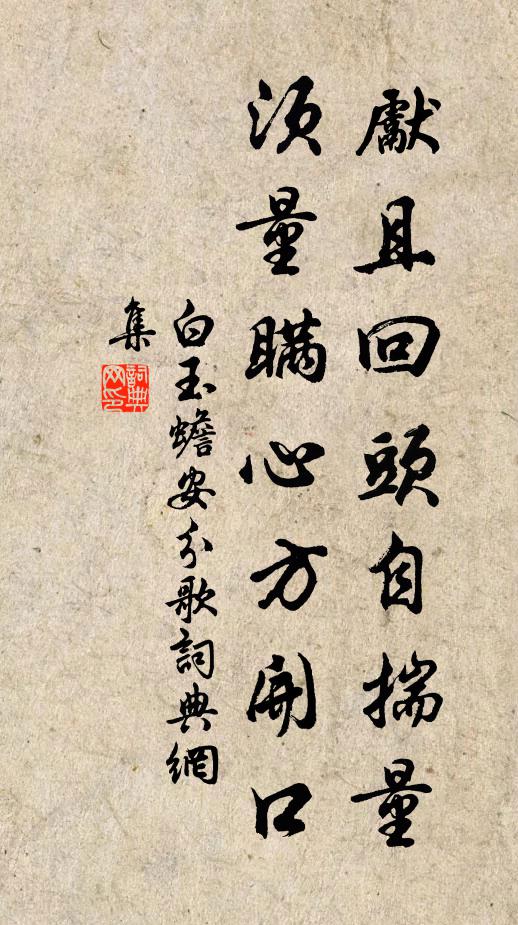 獻且回頭自揣量
須量瞞心方開口
白玉蟾安分歌詞典網
集
詞典
網印